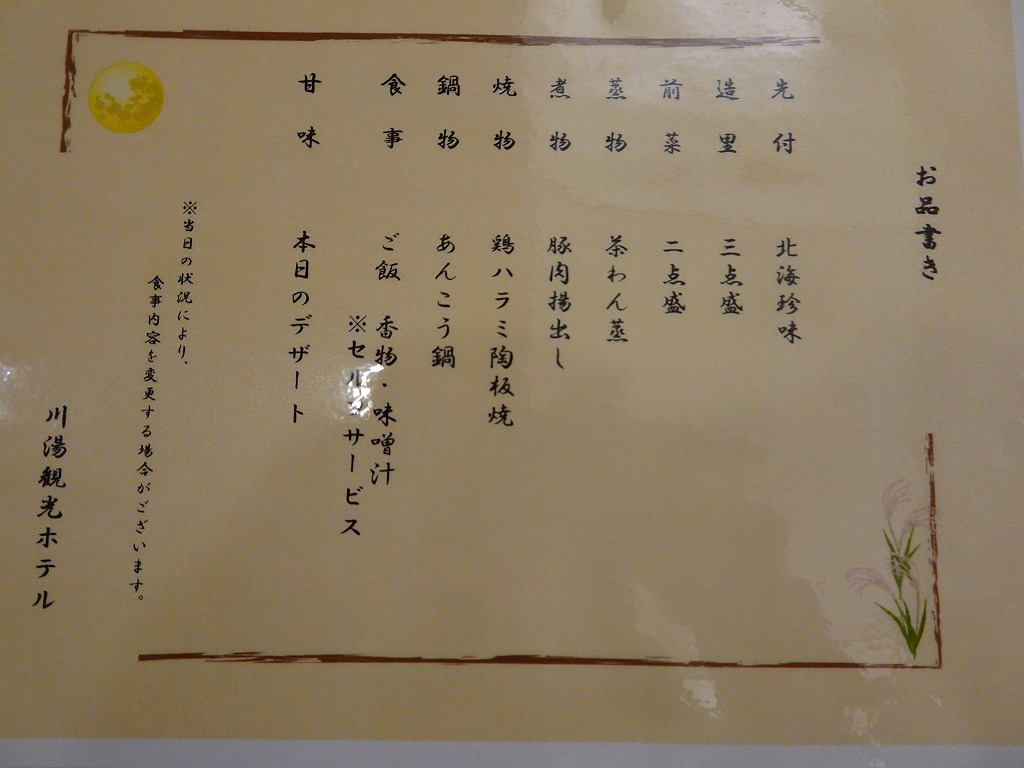 お品書き
先付 北海珍味
造里 三点盛
前菜 二点盛
蒸物 茶わん蒸
煮物 豚肉揚出し
焼物 鶏ハラミ陶板焼
鍋物 あんこう鍋
食事 ご飯 香物・味噌汁
※セルフサービス
甘味 本日のデザート
※当日の状況により、
食事内容を変更する場合がございます。
川湯観光ホテル